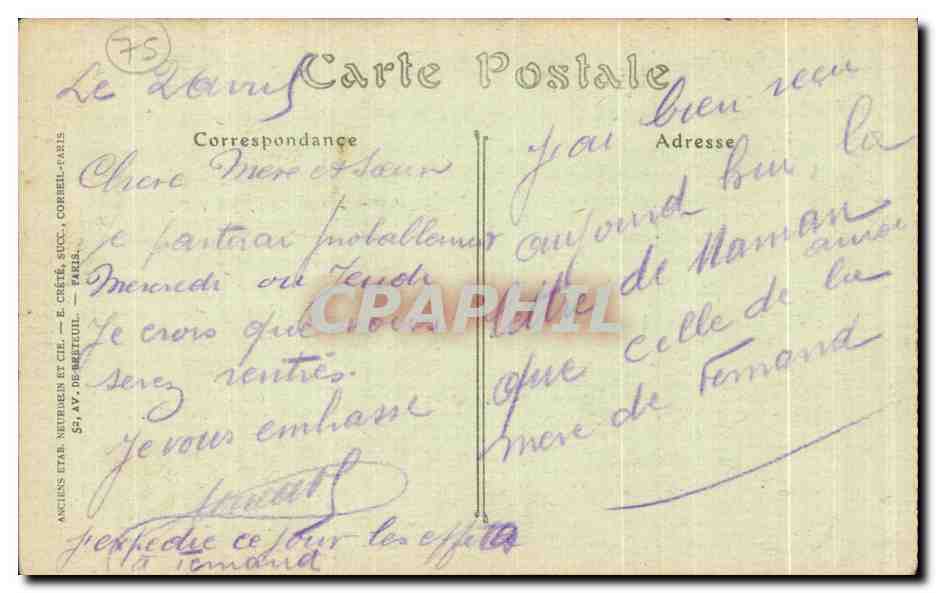 75
Carte Postale
Le 2 avril
Correspondance
Chere Mere et Sœur
Je partirai probablement
Mercredi ou Jeudi
Je crois que vous
serez rentrés.
Je vous embrasse
J'expedie ce jour les effets
à Fernand
Adresse
J'ai bien recu
aujourd hui la
lettre de Maman
ainsi
que celle de la
mere de Fernand
ANCIENS ETAB. NEURDEIN ET CIE. — E. CRÉTÉ, SUCC., CORBEIL-PARIS
52, AV. DE BRETEUIL. — PARIS.
CPAPHIL